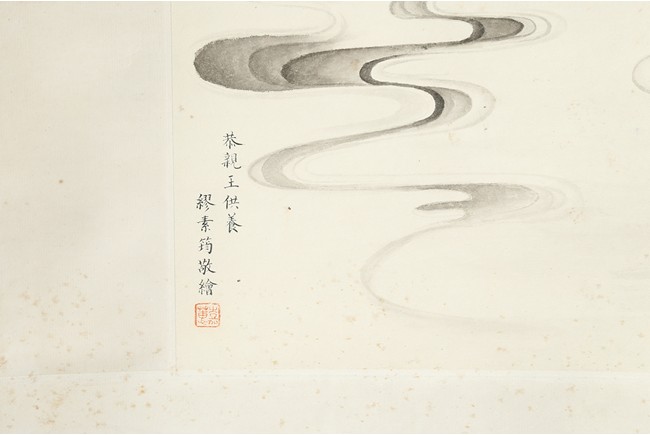 恭親王供養
繆素筠敬繪